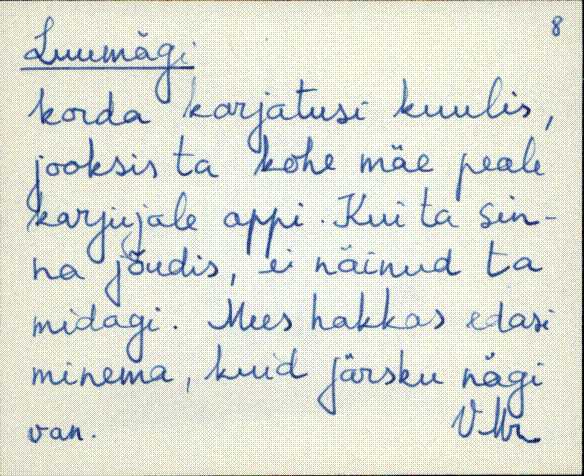 8
Luumägi
korda karjatusi kuulis,
jooksis ta kohe mäe peale
karjujale appi. Kui ta sin-
na jõudis, ei näinud ta
midagi. Mees hakkas edasi
minema, kuid järsku nägi
van.